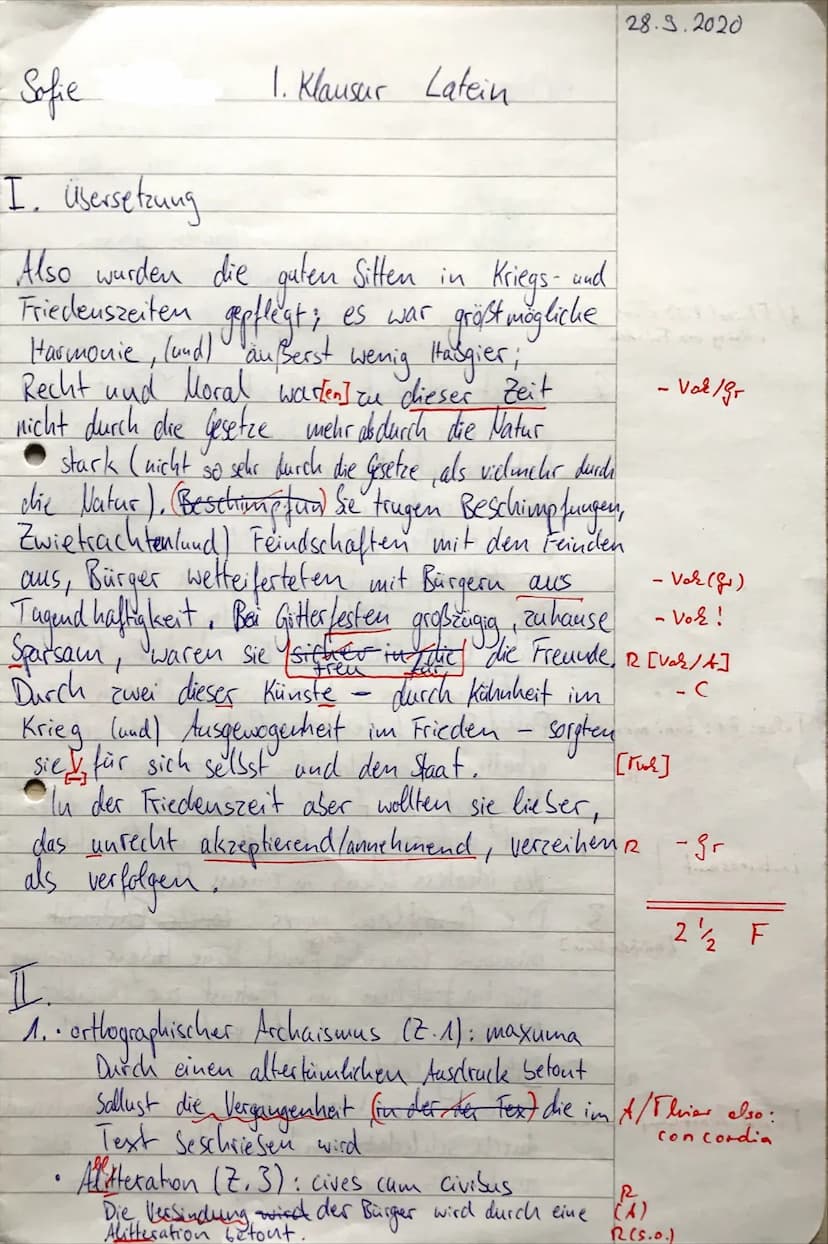 28.9.2020
Sofie 1. Klausur Latein
I. Übersetzung
Also wurden die guten Sitten in Kriegs- und
Friedenszeiten gepflegt; es war größtmögliche
Harmonie, (und) äußerst wenig Habgier;
Recht und Moral war[en] zu dieser Zeit - Vok/gr
nicht durch die Gesetze mehr als durch die Natur
stark (nicht so sehr durch die Gesetze, als vielmehr durch
die Natur). (Beschimpfun) Sie trugen Beschimpfungen,
Zwietrachten (und) Feindschaften mit den Feinden
aus, Bürger wetteiferteten mit Bürgern aus - Vok(gr)
Tugendhaftigkeit. Bei Götterfesten großzügig, zuhause - Vok!
Sparsam, waren sie sicher in die treu für die Freunde. R [Vok/A]
Durch zwei dieser Künste – durch Kühnheit im - C
Krieg (und) Ausgewogenheit im Frieden – sorgten
sie V für sich selbst und den Staat. [Vok]
[-]
In der Friedenszeit aber wollten sie lieber,
das unrecht akzeptierend/annehmend, verzeihen R - gr
als verfolgen.
2 ½ F
II.
1. · orthographischer Archaismus (Z.1): maxuma
Durch einen altertümlichen Ausdruck betont
Sallust die Vergangenheit (in der der Tex) die im A/T hier also:
Text beschrieben wird concordia
· Alitteration (Z.3): cives cum civibus R
Die Verbindung wird der Bürger wird durch eine (A)
Alitteration betont. R(s.o.)